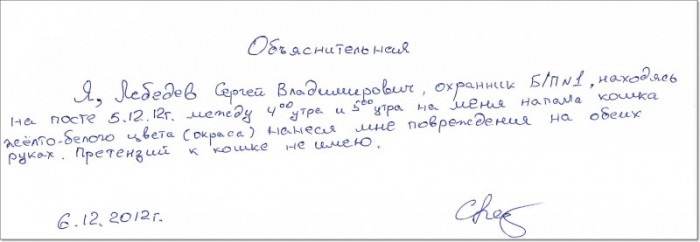 Объяснительная
Я, Лебедев Сергей Владимирович, охранник Б/П №1, находясь
на посте 5.12.12г. между 4⁰⁰ утра и 5⁰⁰ утра на меня напала кошка
жёлто-белого цвета (окраса) нанеся мне повреждения на обеих
руках. Претензий к кошке не имею.
6.12.2012г.